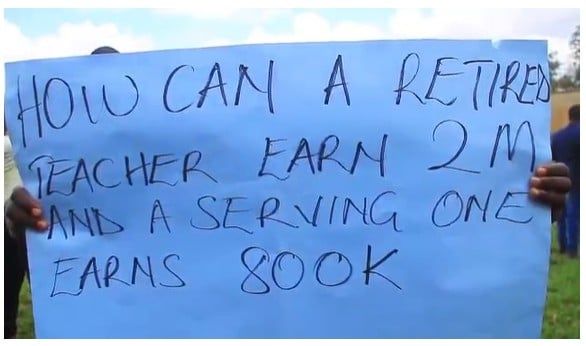 HOW CAN A RETIRED
TEACHER EARN 2M
AND A SERVING ONE
EARNS 800K